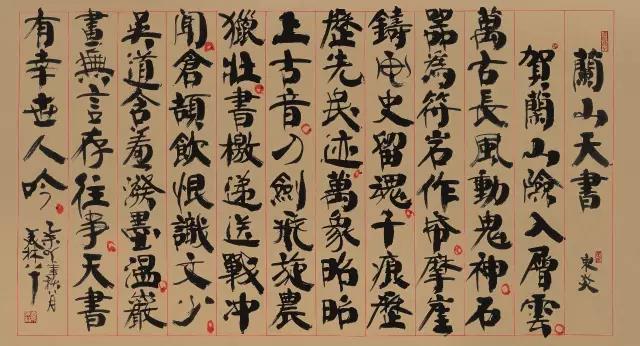 蘭山天書
東炎
賀蘭山險入層雲
萬古長風動鬼神石
器為符岩作帛摩崖
鑄史留魂千痕歷
歷先民迹萬象昭昭
上古音刀劍飛旋農
獵壯書檄遞送戰冲
聞倉頡飲恨識文少
吳道含羞潑墨溫巖
畫無言存往事天書
有幸世人吟